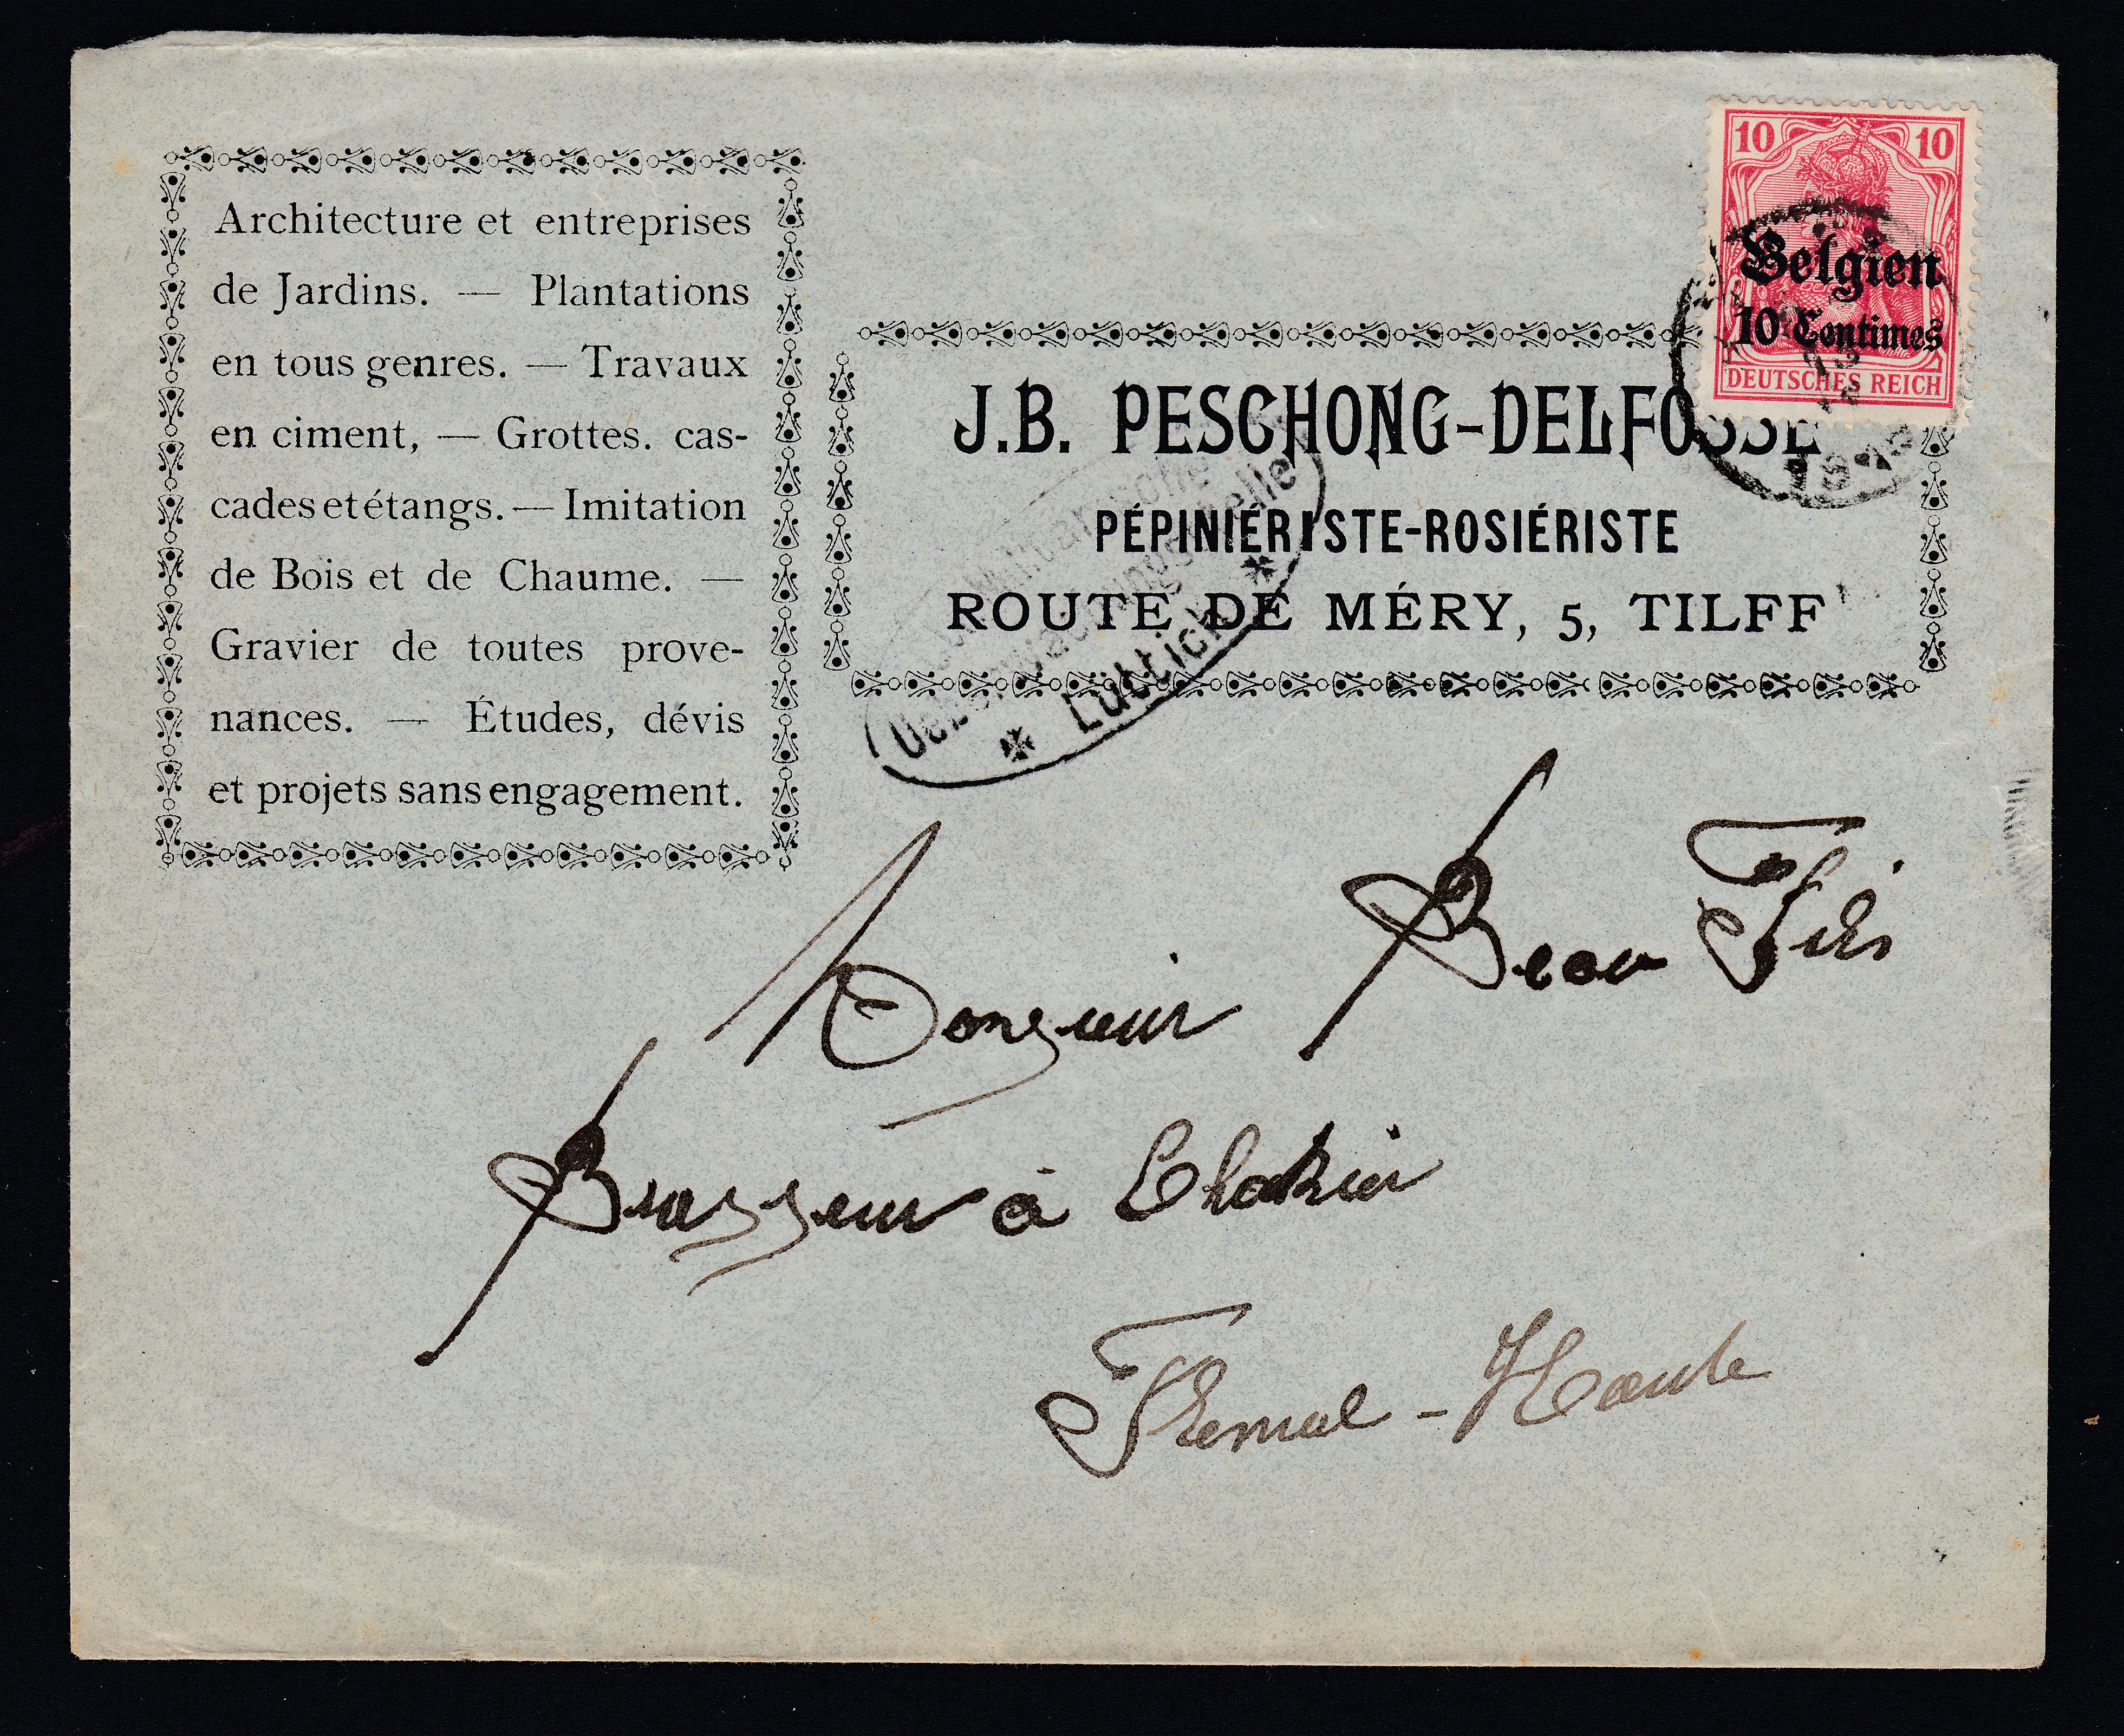 Architecture et entreprises
de Jardins. — Plantations
en tous genres. — Travaux
en ciment, — Grottes. cas-
cades et étangs. — Imitation
de Bois et de Chaume. —
Gravier de toutes prove-
nances. — Études, dévis
et projets sans engagement.
10 10
Belgien
10 Centimes
DEUTSCHES REICH
J.B. PESCHONG-DELFOSSE
PÉPINIÉRISTE-ROSIÉRISTE
ROUTE DE MÉRY, 5, TILFF
Lüttich
Monsieur
Brasseur à Chokier
Flemal - Haute